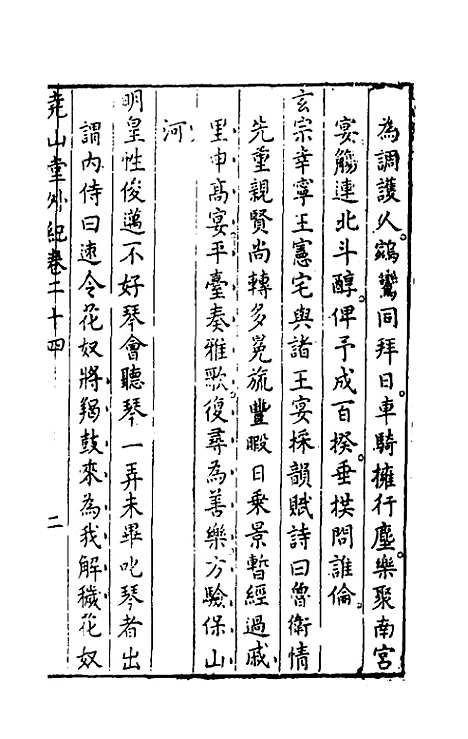 為調護人鵷鸞同拜日車騎擁行塵樂聚南宮
宴觴連北斗醇俾予成百揆垂拱問誰倫
玄宗幸寧王憲宅與諸王宴探韻賦詩曰魯衛情
先重親賢尚轉多冕旒豐暇日乗景暫經過戚
里申高宴平臺奏雅歌復尋為善樂方驗保山
河
明皇性俊邁不好琴會聽琴一弄未畢叱琴者出
謂内侍曰速令花奴將羯鼓來為我解穢花奴
堯山堂外紀卷二十四
二